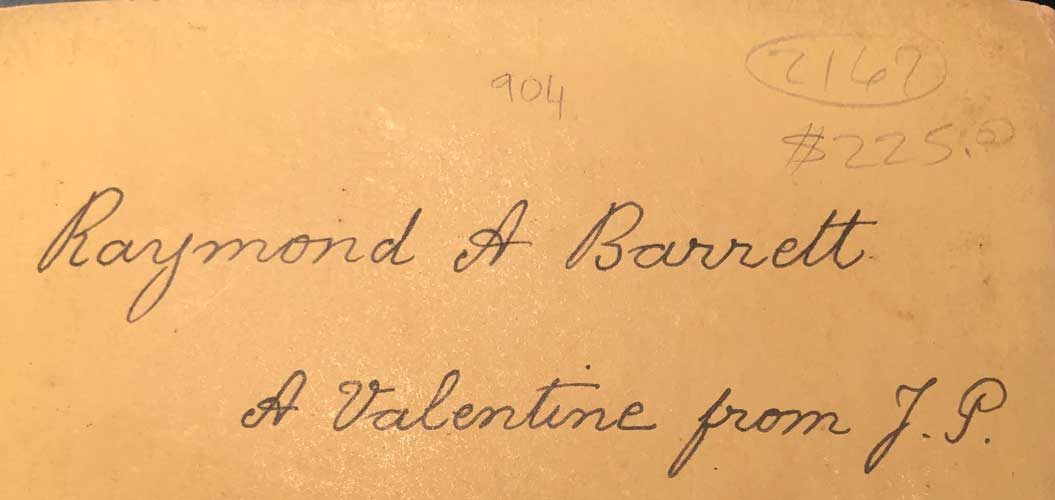 2167
904
$225.0
Raymond A Barrett
A Valentine from J. P.